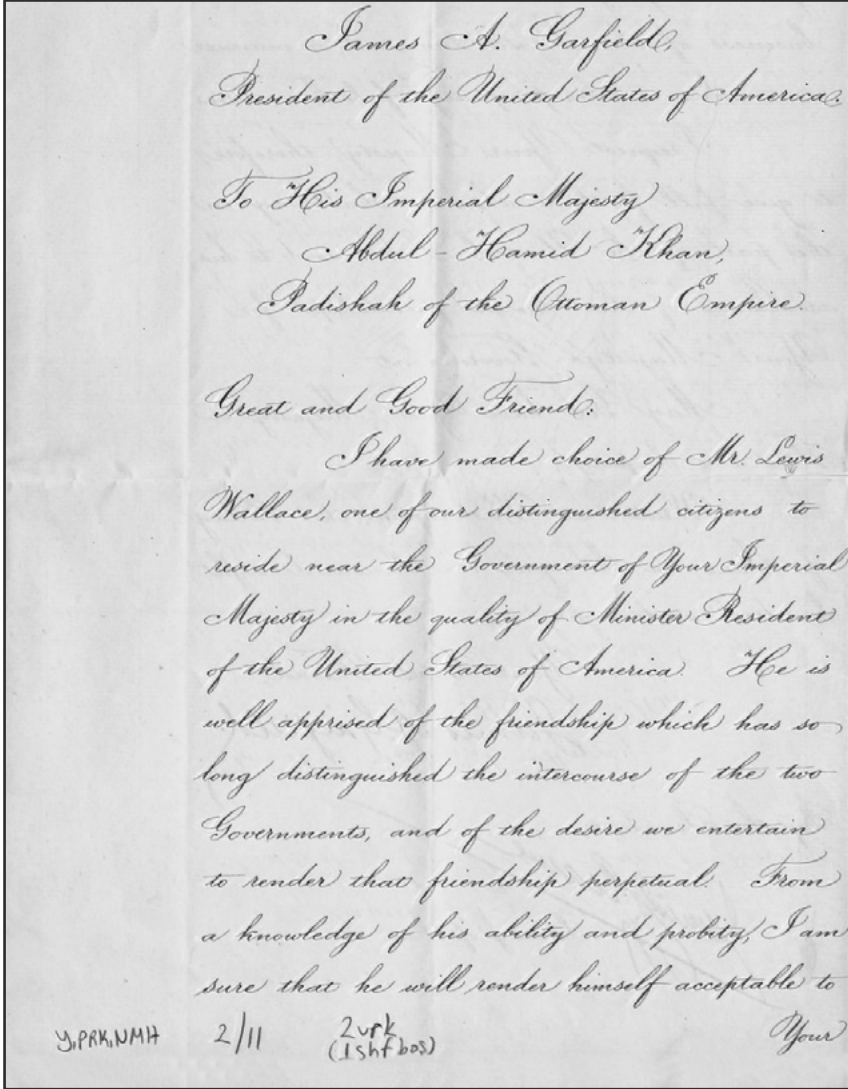 James A. Garfield,
President of the United States of America.
To His Imperial Majesty
Abdul-Hamid Khan,
Padishah of the Ottoman Empire.
Great and Good Friend:
I have made choice of Mr. Lewis
Wallace, one of our distinguished citizens to
reside near the Government of Your Imperial
Majesty in the quality of Minister Resident
of the United States of America. He is
well apprised of the friendship which has so
long distinguished the intercourse of the two
Governments, and of the desire we entertain
to render that friendship perpetual. From
a knowledge of his ability and probity, I am
sure that he will render himself acceptable to
Your
Y,PRK,NMH 2/11 2 vrk
(1 shf boş)